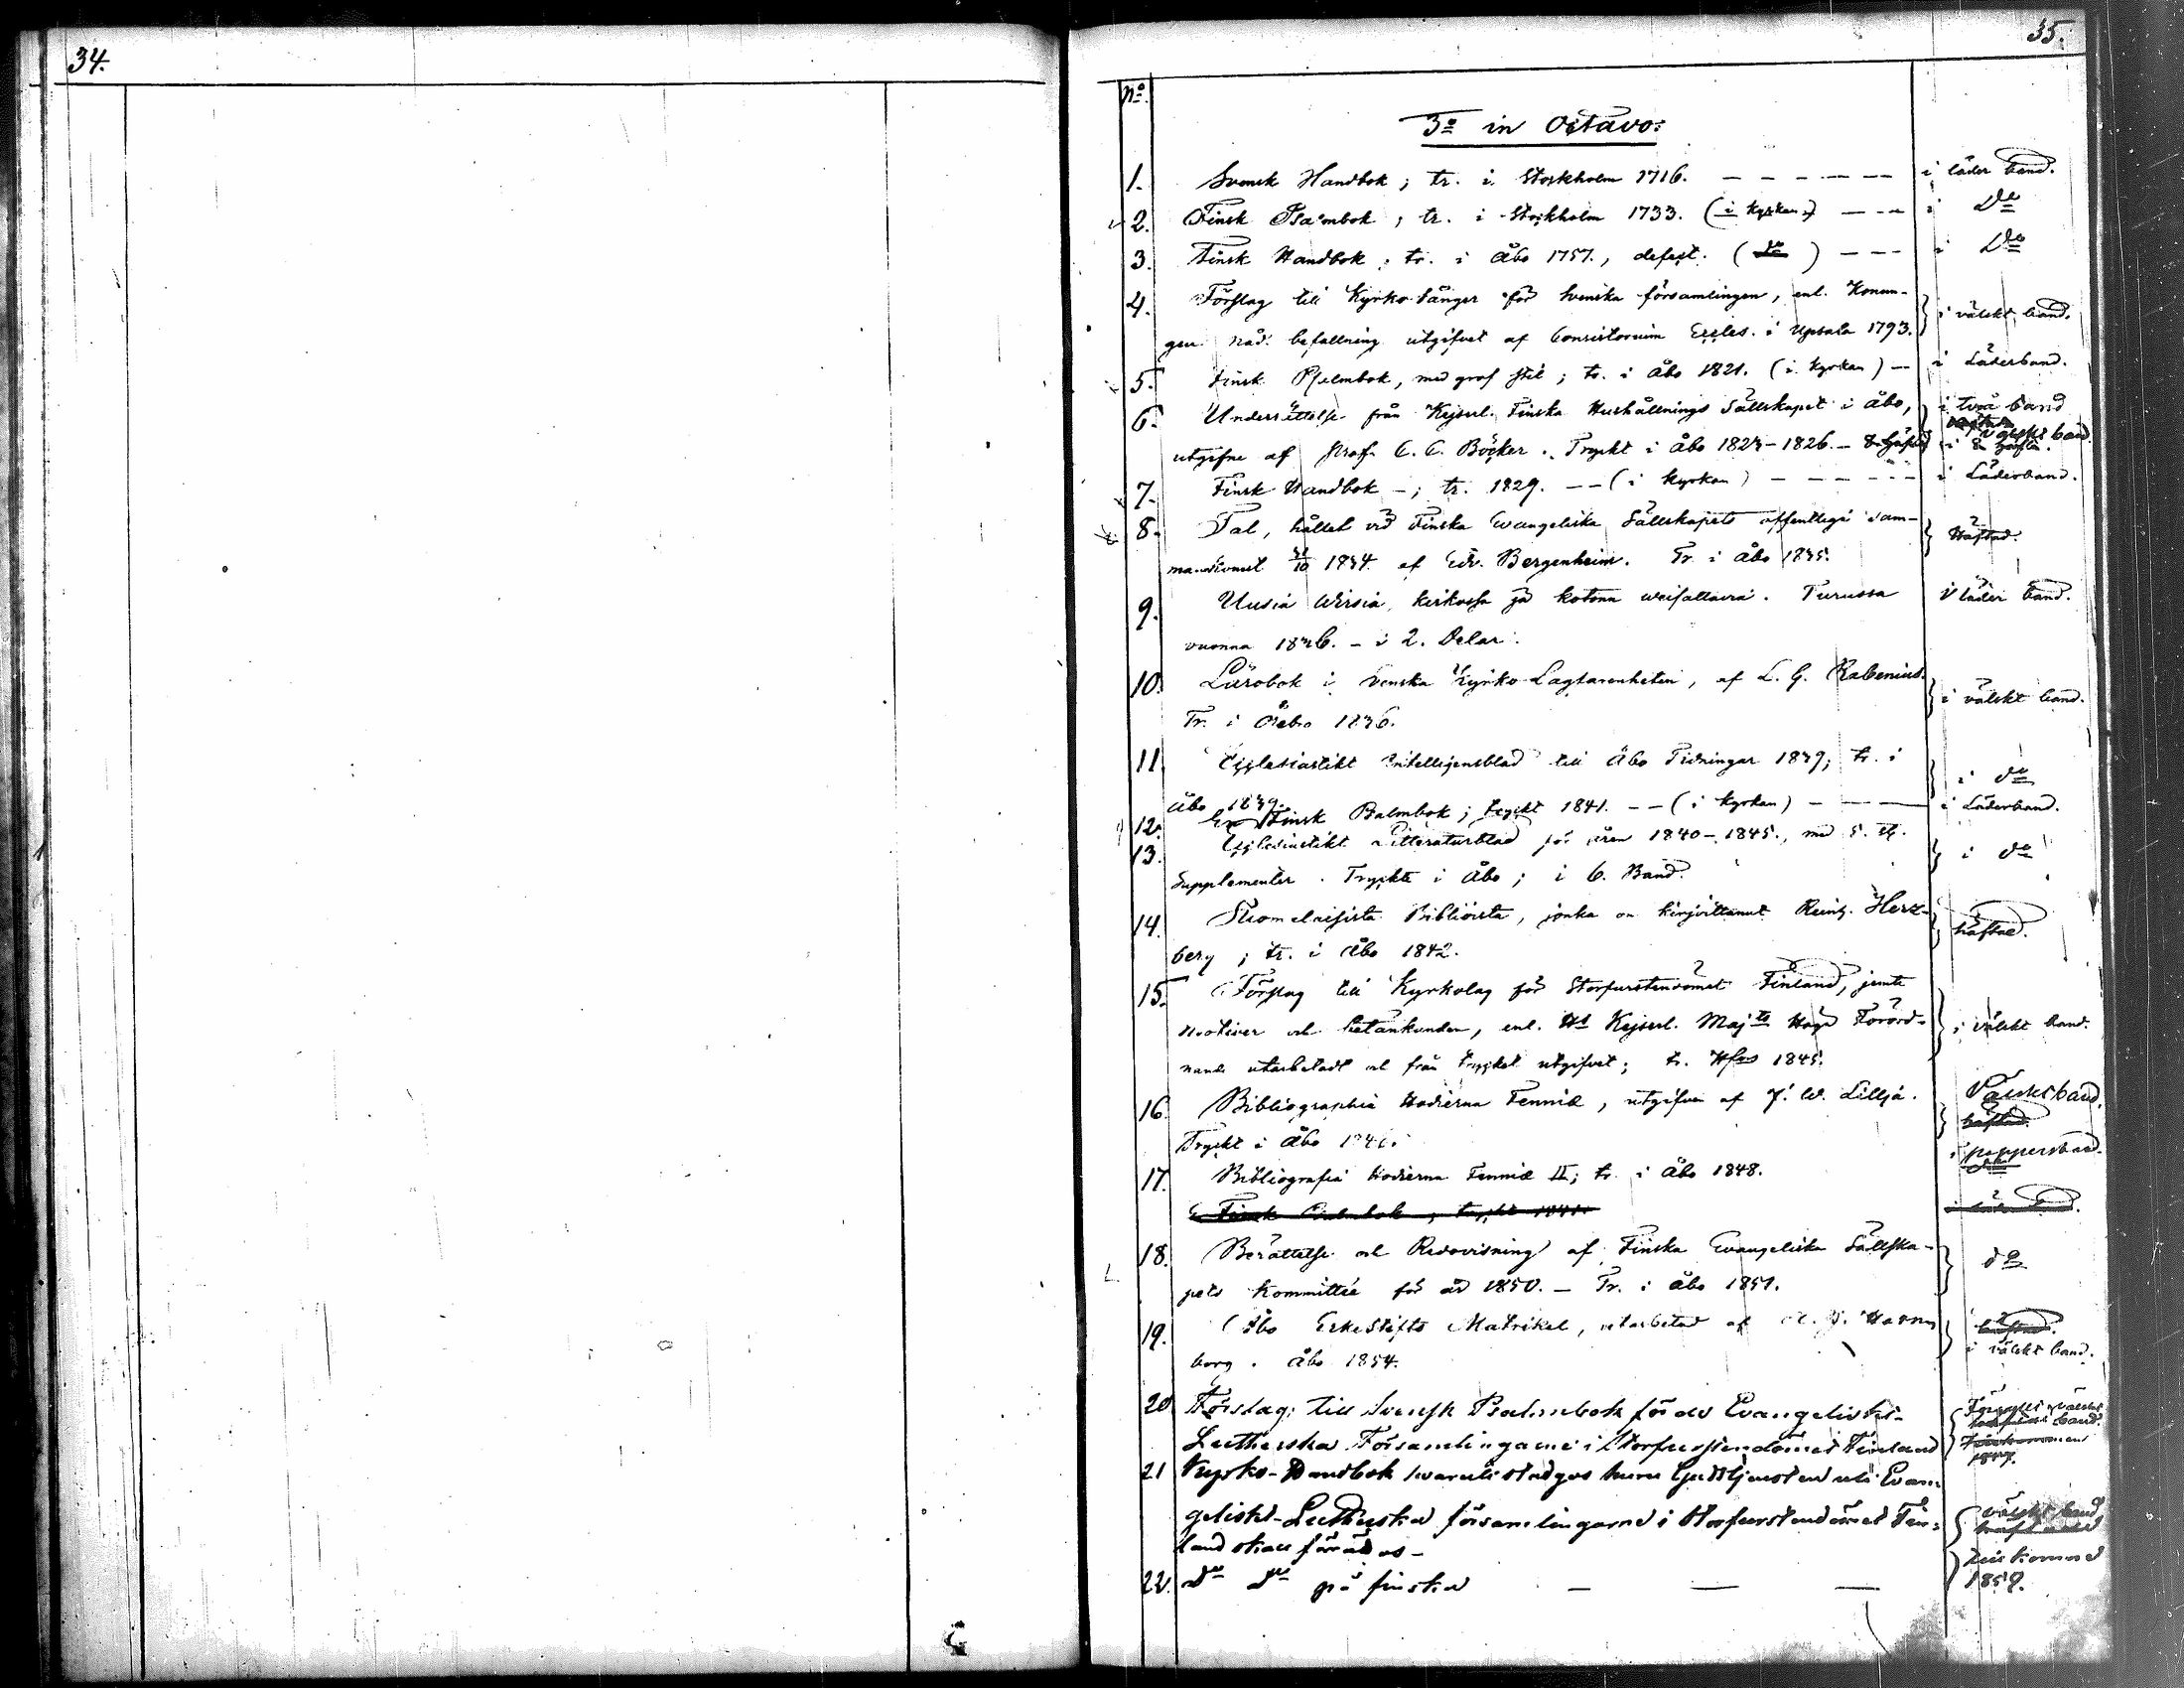 34.
35.
No.
3o in Octavo:
1. Svensk Handbok; tr. i Stockholm 1716. — — — — — i läder band.
2. Finsk Psalmbok, tr. i Stockholm 1733. (i kyrkan) — — — i Do
3. Finsk Handbok; tr. i Åbo 1757., defect. (do) — — — i Do
4. Förslag till Kyrko-Sånger för Svenska församlingen, enl. Konun-
gen nåd. befallning utgifvet af Consistorium Eccles. i Upsala 1793. i välskt band.
5. Finsk Psalmbok, med grof stil; tr. i Åbo 1821. (i kyrkan) — i Läderband.
6. Underrättelse från Kejserl. Finska Hushållnings Sällskapet i Åbo, i två band
utgifne af Prof. C. C. Böcker. Tryckt i Åbo 1823-1826. —
7. Finsk Handbok —; tr. 1829. — — (i kyrkan) — — — — — i Läderband.
8. Tal, hållet vid Finska Evangeliska Sällskapets offentliga sam-
mankomst 1834 af Edv. Bergenheim. Tr. i Åbo 1835. Häftad.
9. Uusia Wirsiä, kirkossa ja kotona weisattavia. Turussa i läder band.
vuonna 1836. — i 2. Delar.
10. Lärobok i Svenska Kyrko-Lagfarenheten, af L. G. Rabenius.
Tr. i Örebro 1836. i välskt band.
11. Ecclesiastikt Intelligensblad till Åbo Tidningar 1839; tr. i
Åbo 1839. i do
12. Finsk Psalmbok; tryckt 1841. — — (i kyrkan) — — — i Läderband.
13. Ecclesiastikt Litteraturblad för åren 1840-1845., med 5. st.
Supplementer. Tryckte i Åbo; i 6. Band. i do
14. Suomalaisista Biblioista, jonka on kirjoittanut Reinh. Herz-
berg; tr. i Åbo 1842. häftad.
15. Förslag till Kyrkolag för Storfurstendömet Finland, jemte
motiver och betänkanden, enl. Hs Kejserl. Majts Höga Förord-
nande utarbetadt och från trycket utgifvet; tr. Hfors 1845. i välskt band.
16. Bibliographia Hodierna Fenniæ, utgifven af J. W. Lillja. Välsktband.
Tryckt i Åbo 1846. häftad.
17. Bibliografia Hodierna Fenniæ II; tr. i Åbo 1848. i pappersband.
Finsk Psalmbok; tryckt 1841.
18. Berättelse och Redovisning af Finska Evangeliska Sällska-
pets Kommittée för år 1850. — Tr. i Åbo 1851. do
19. Åbo ErkeStifts Matrikel, utarbetad af
borg. Åbo 1854. häftad. i välskt band.
20. Förslag till Svensk Psalmbok för de Evangeliskt-
Lutherska Församlingarne i Storfurstendömet Finland
21. Kyrko-Handbok hvaruti stadgas huru Gudstjensten uti Evan-
geliskt-Lutherska församlingarne i Storfurstendömet Fin-
land skall förrättas — välskt band
22. Do Do på finska — — — Inkommo
1859.